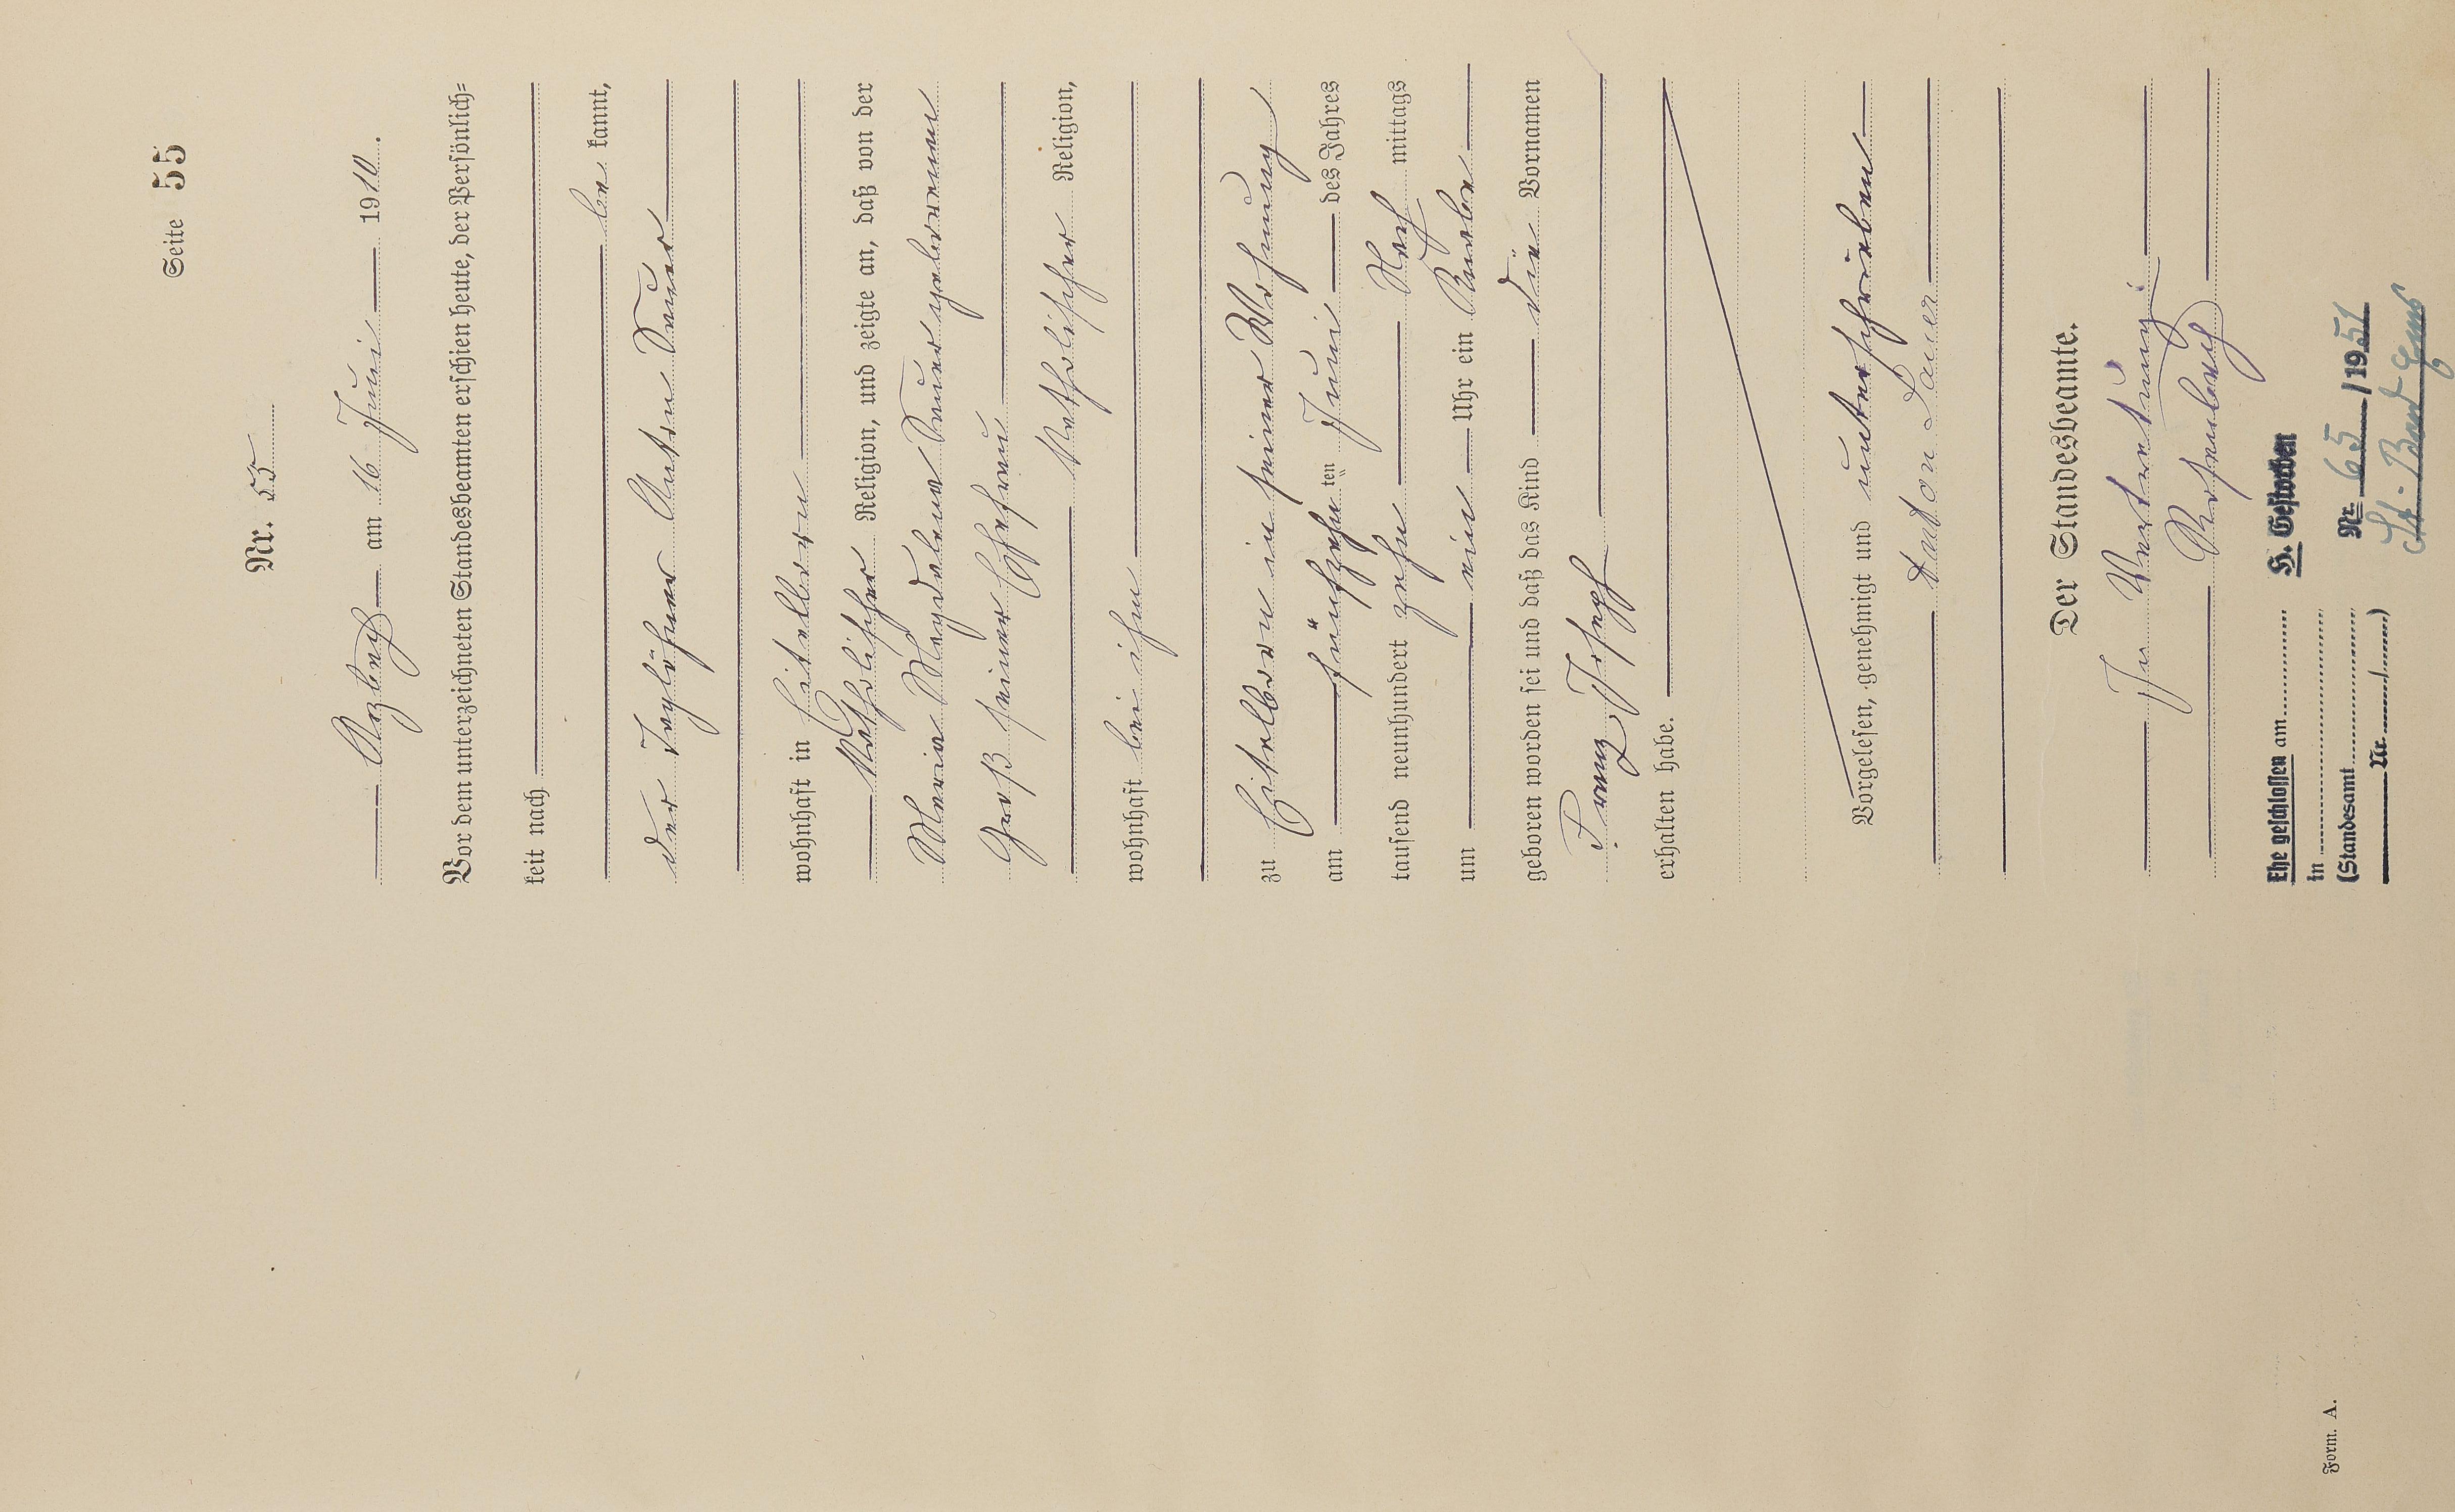 Seite 55
Nr. 55
Arzbach am 16 Juni 1910.
Vor dem unterzeichneten Standesbeamten erschien heute, der Persönlich=
keit nach
be kannt,
der Taglöhner Anton Sauer
wohnhaft in Eitelborn
Katholischer Religion, und zeigte an, daß von der
Maria Magdalena Sauer geborenen
Groß seiner Ehefrau
Katholischer Religion,
wohnhaft bei ihm
zu Eitelborn in seiner Wohnung
am fünfzehn ten Juni des Jahres
tausend neunhundert zehn Nach mittags
um ein Uhr ein Knabe
geboren worden sei und daß das Kind die Vornamen
Franz Joseph
erhalten habe.
Vorgelesen, genehmigt und unterschrieben
Anton Sauer
Der Standesbeamte.
In Vertretung
Ehe geschlossen am
in
(Standesamt
Nr. / )
H. Gestorben
Nr. 65 /1951
St. Bad Ems
Form. A.